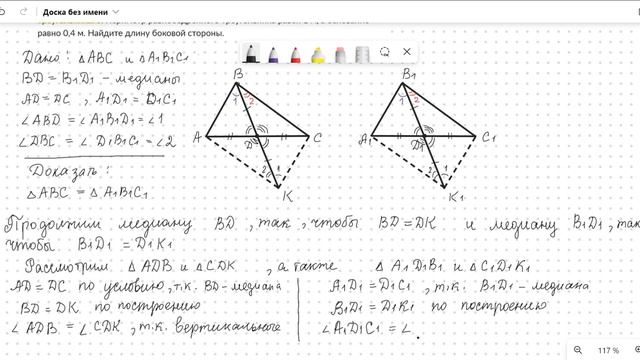 Доска без имени
равно 0,4 м. Найдите длину боковой стороны.
Дано: △ABC и △A1B1C1
BD = B1D1 - медианы
AD = DC , A1D1 = D1C1
∠ABD = ∠A1B1D1 = ∠1
∠DBC = ∠D1B1C1 = ∠2
Доказать:
△ABC = △A1B1C1
B
1 2
A
C
D
2 1
K
B1
1 2
A1
C1
D1
2 1
K1
Продолжим медиану BD, так, чтобы BD = DK и медиану B1D1, так
чтобы B1D1 = D1K1
Рассмотрим △ADB и △CDK , а также △A1D1B1 и △C1D1K1
AD = DC по условию, т.к. BD - медиана
BD = DK по построению
∠ADB = ∠CDK, т.к. вертикальные
A1D1 = D1C1, т.к. B1D1 - медиана
B1D1 = D1K1 по построению
∠A1D1C1 = ∠
117 %